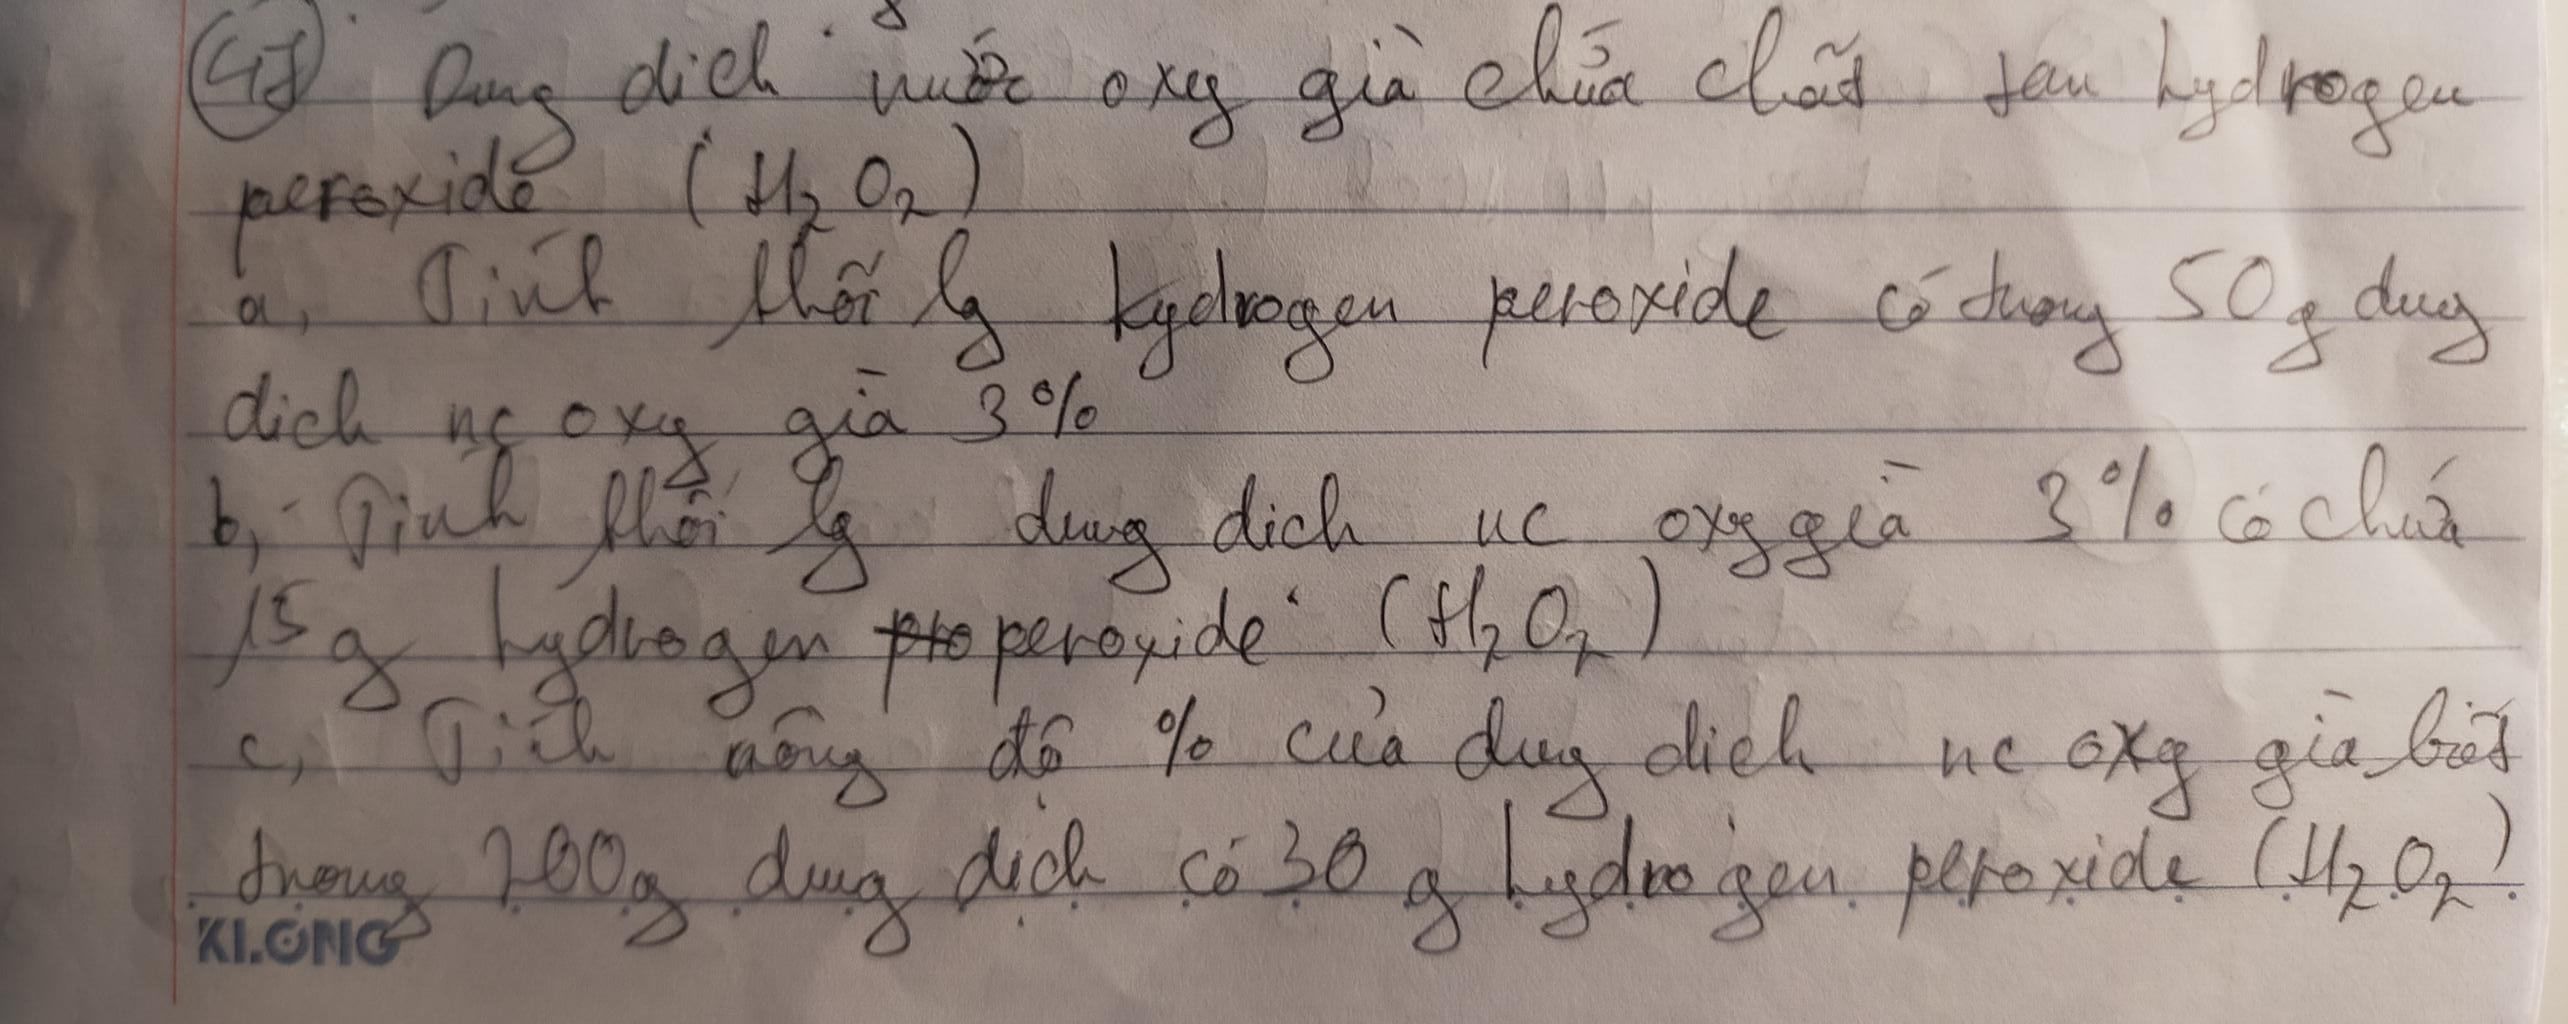 48 Dung dich nước oxy già chứa chất tan hydrogen
peroxide (H₂O₂)
a, Tính khối lg hydrogen peroxide có trong 50g dung
dich nc oxy già 3%
b, Tính khối lg dung dich nc oxy già 3% có chứa
15g hydrogen pro peroxide (H₂O₂)
c, Tính nồng độ % của dung dich nc oxy già biết
trong 200g dung dịch có 30 g hydrogen peroxide (H₂O₂)
KLONG